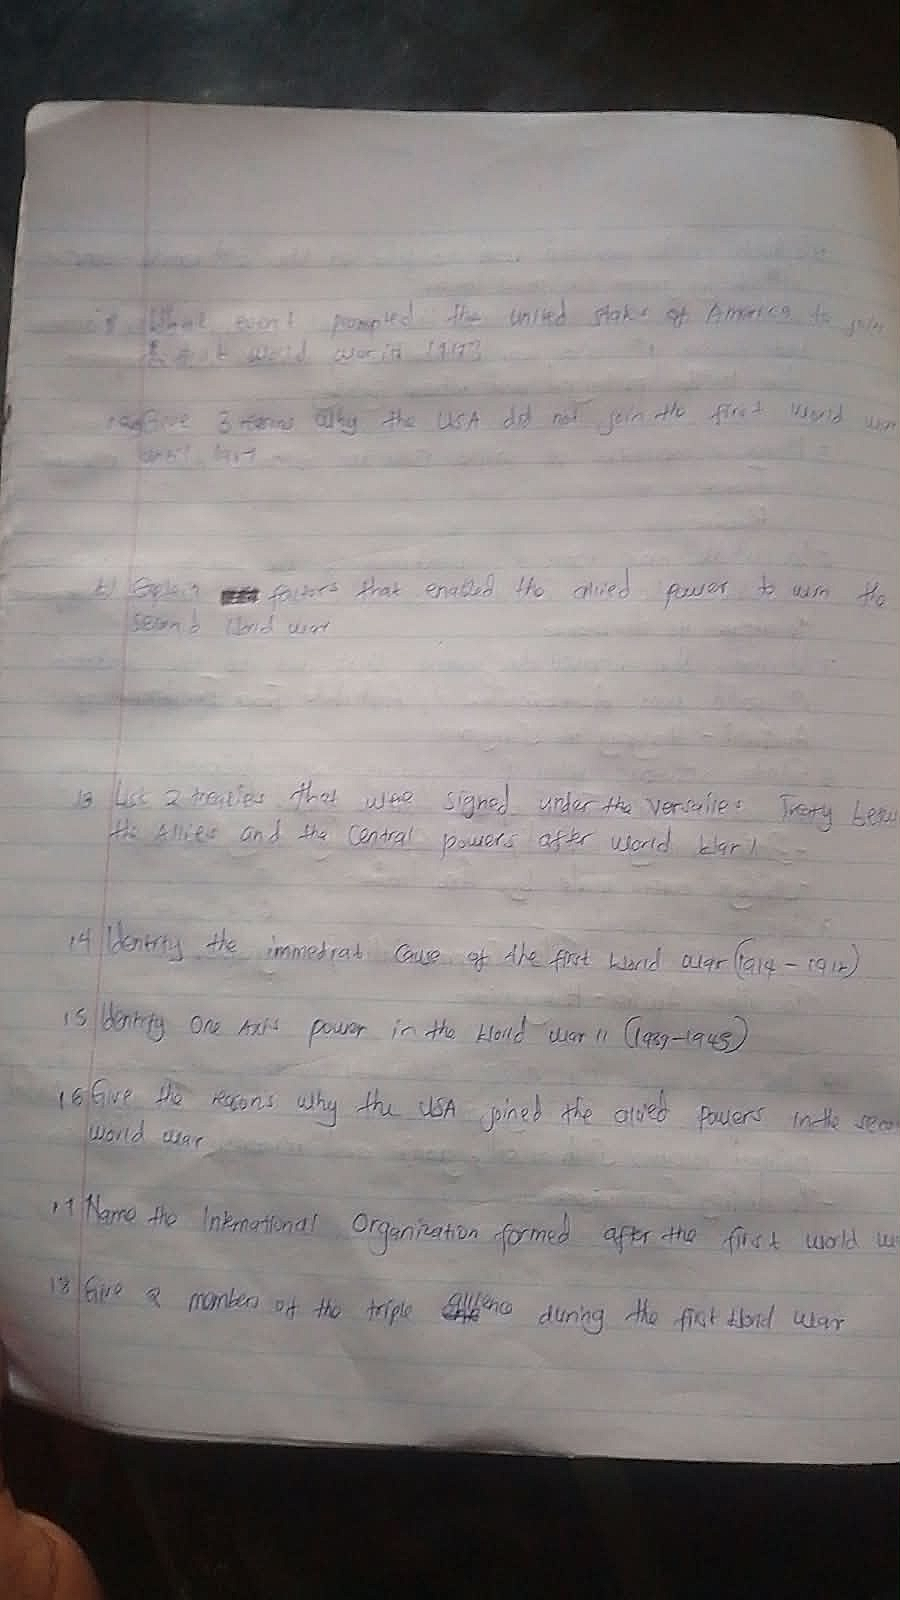 What event prompted the united states of America to join
world war in 1917?
Give 3 why the USA did not join the first world war
until 1917
b) Explain factors that enabled the allied power to win the
second World war
13 List 2 treaties that were signed under the Versailles Treaty
the Allies and the Central powers after World War 1
14 Identify the immediat cause of the first World War (1914 -
15 Identify One Axis power in the World War 11 (1939-1945)
16 Give the reasons why the USA joined the allied Powers in the
World war
17 Name the International Organization formed after the first world
18 Give 2 members of the triple during the first World War